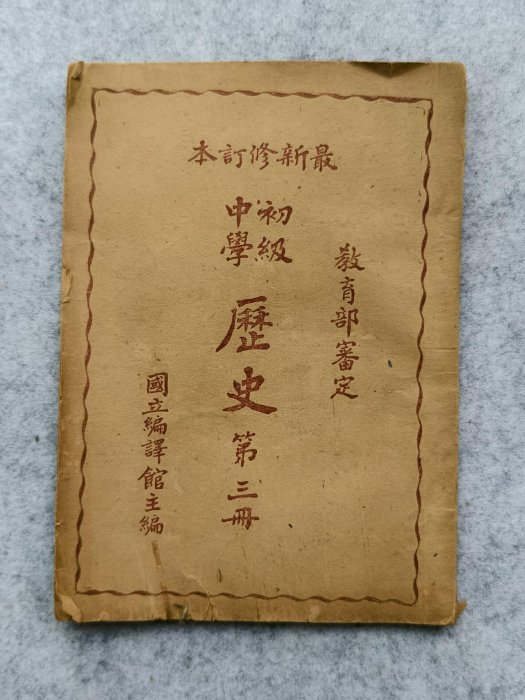 最新修訂本
教育部審定
初級
中學
歷史 第三冊
國立編譯館主編